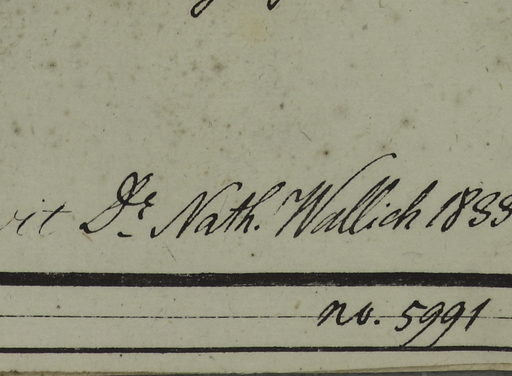 Dr. Nath. Wallich 1833
no. 5991